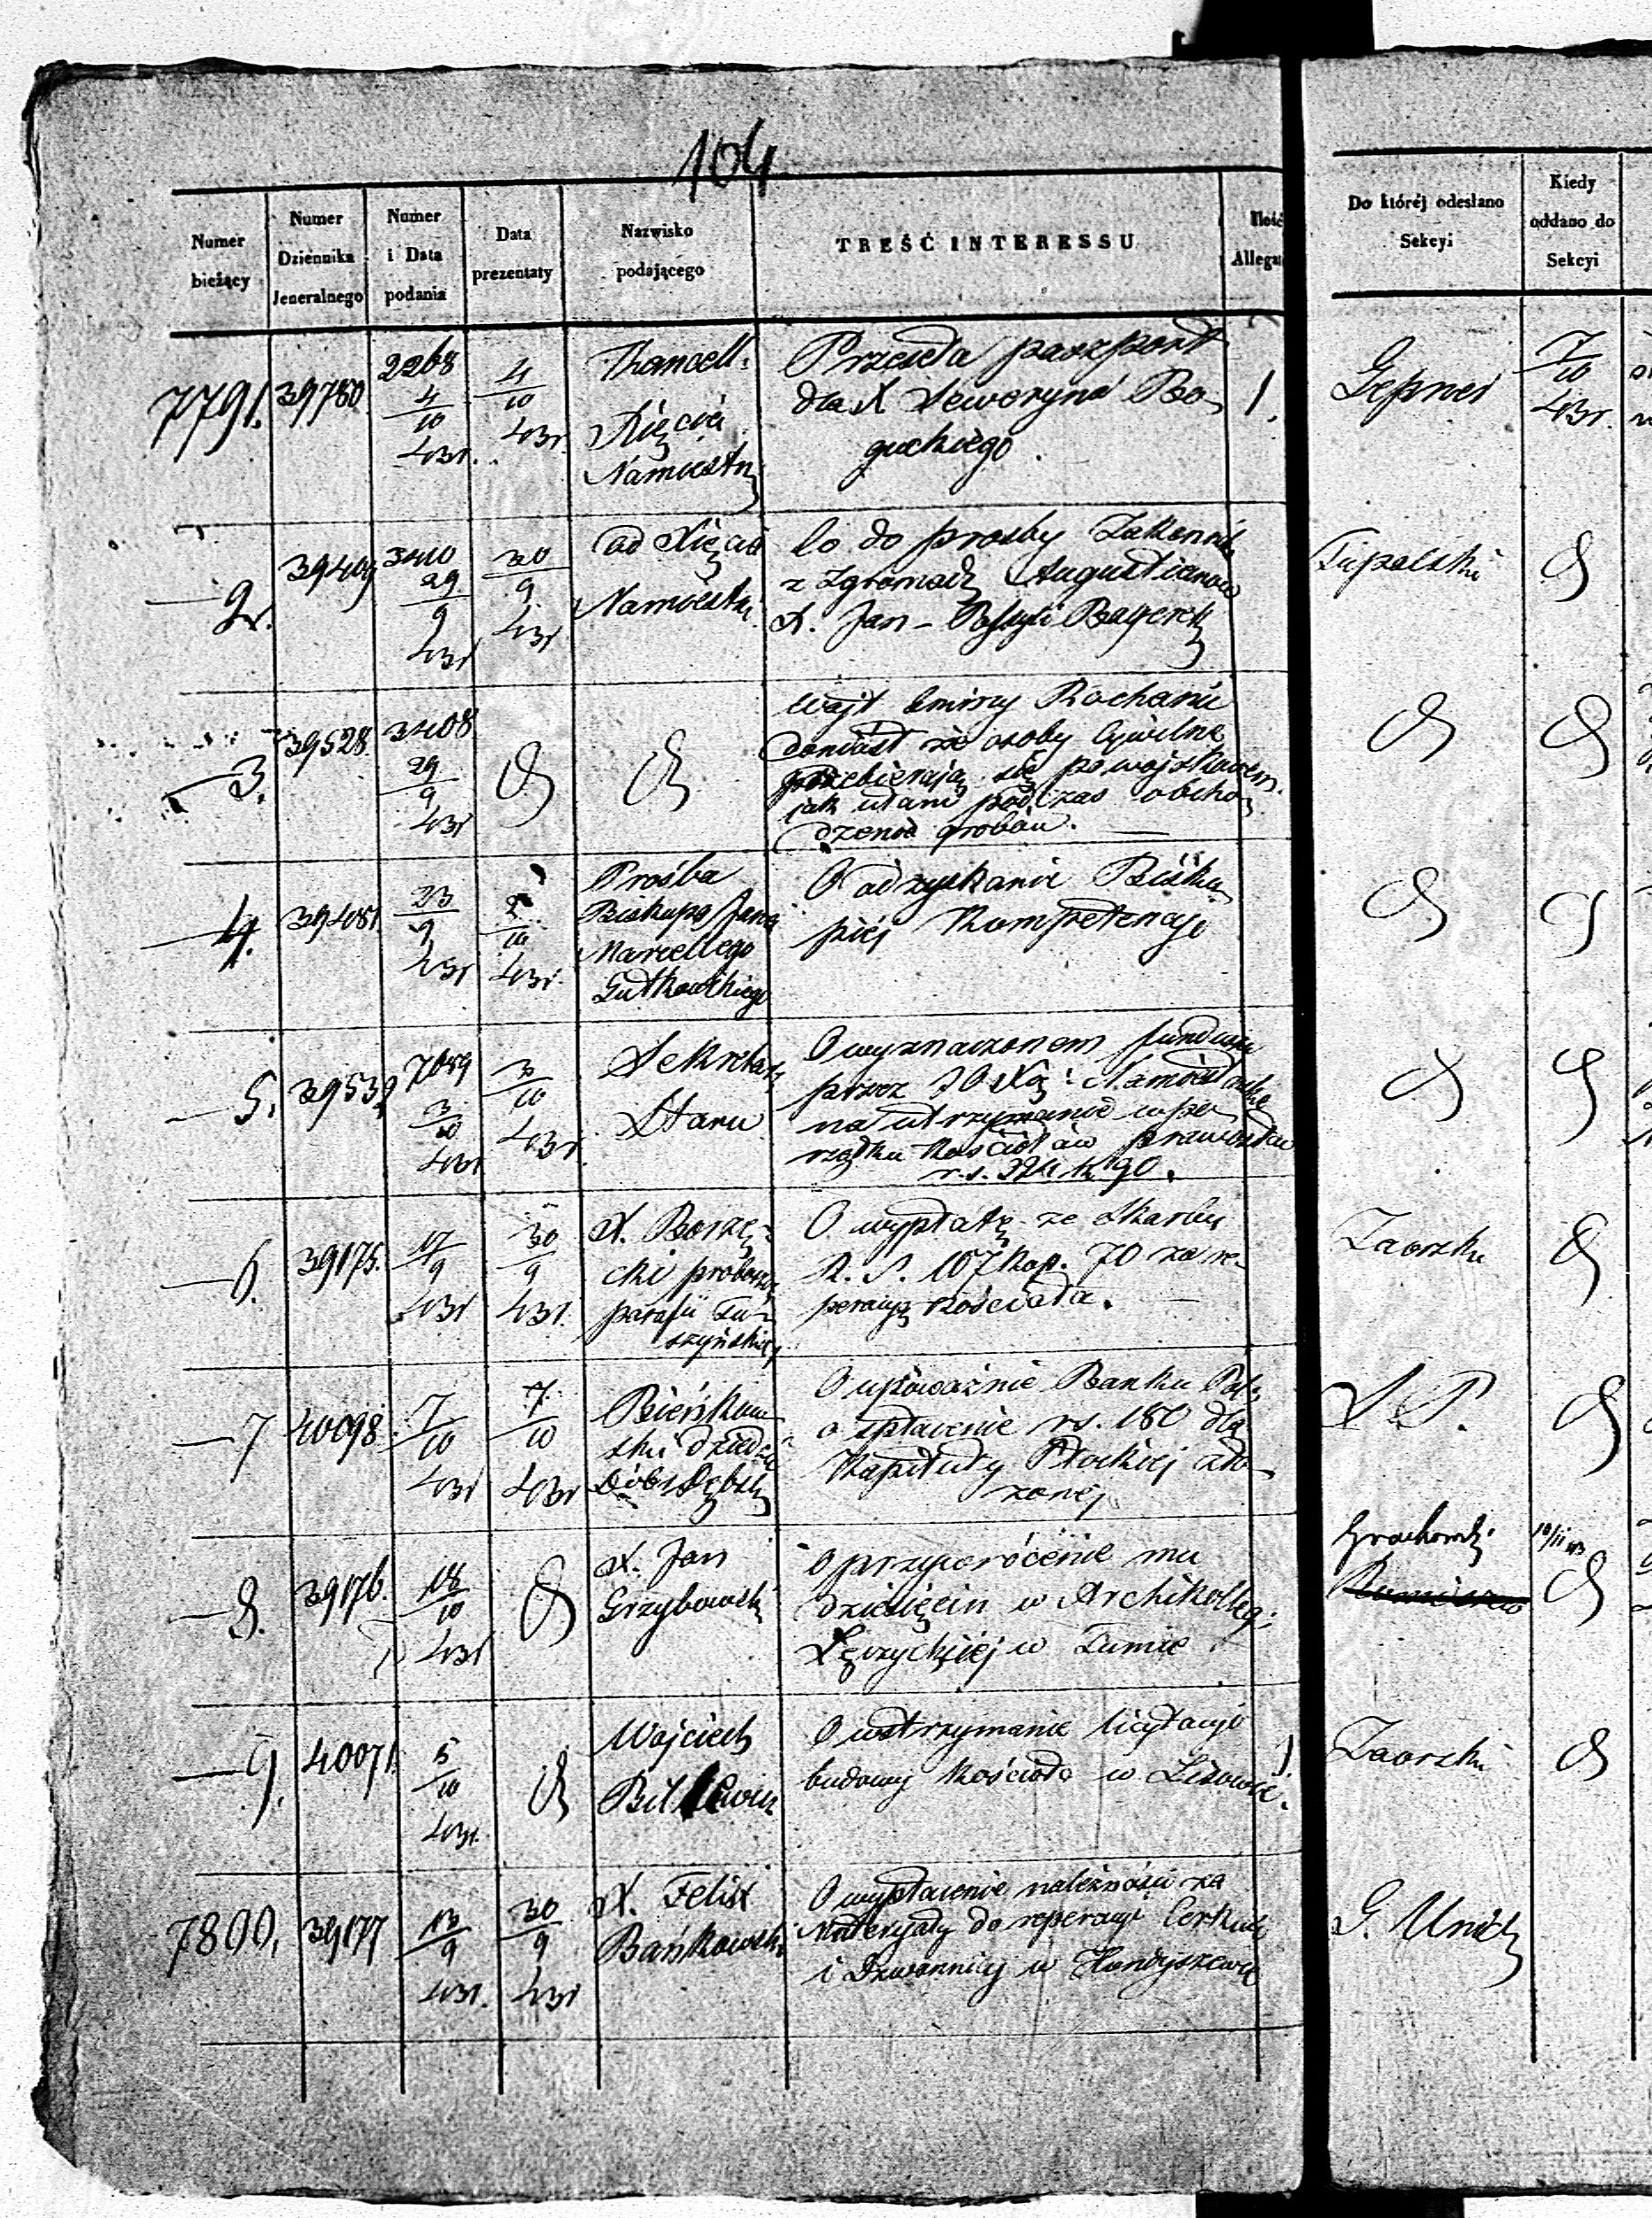 104
Numer bieżący
Numer Dziennika Jeneralnego
Numer i Data podania
Data prezentaty
Nazwisko podającego
TREŚĆ INTERESSU
Ilość
Do któréj odesłano Sekcyi
Kiedy oddano do Sekcyi
7791. 39780 2268 4/10 431. 4/10 431.
Kancell:
Xięcia
Namiestn
Przesła paszport
dla X Seweryna Bo
guckiego.
1.
Gepner 7/10 431.
2. 39409 3410 29/9 431 30/9 431
od Xięcia
Namiestn.
Co do prosby Zakonnik
z Zgromadz Augustianów
X. Jan
Tupalski
3. 39528 3408 29/9 431
Wójt Gminy Rochanie
doniósł że osoby Cywilne
przebierają się po wojskowem
jak ułani podczas obcho
dzenia grobów.
4. 39481. 23/9 431 2/10 431.
Prośba
Biskupa Jana
Marcellego
Gutkowskiego
O odzyskanie Bisku
piej Kompetencyi
5. 39532 7089 3/10 431 3/10 431
Sekretarz
Stanu
O wyznaczonem funduszu
przez JO Xię: Namiest
na utrzymanie w po
rządku kościołów prawosław
r.s. 324 k 90.
6. 39175. 17/9 431 30/9 431.
X. Borzę
cki proboszcz
parafii Tu
szyńskiej
O wypłatę ze Skarbu
R. S. 107 kop. 70 za re
peracyą kościoła.
Zaorski
7 40098 7/10 431 7/10 431
Bieńkow
ski dziedzic
Dóbr
O upoważnie Banku Pols
o spłacenie rs. 180 dla
Kapituły Płockiej zło
żonej
S P.
8. 39176. 18/10 431
X. Jan
Grzybowski
O przywrócenie mu
dziesięcin w Archikolleg:
Łęczyckiej w Tumie
Grochowski 10/11 43
9. 40071 5/10 431.
Wojciech
O wstrzymanie licytacyi
budowy kościoła w
1
Zaorski
7800. 39177 13/9 431. 30/9 431
X. Felix
Bańkowski
O wypłacenie należności za
Materyały do reperacyi Cerkwi
i Dzwonnicy w Horodyszcze
G. Unick